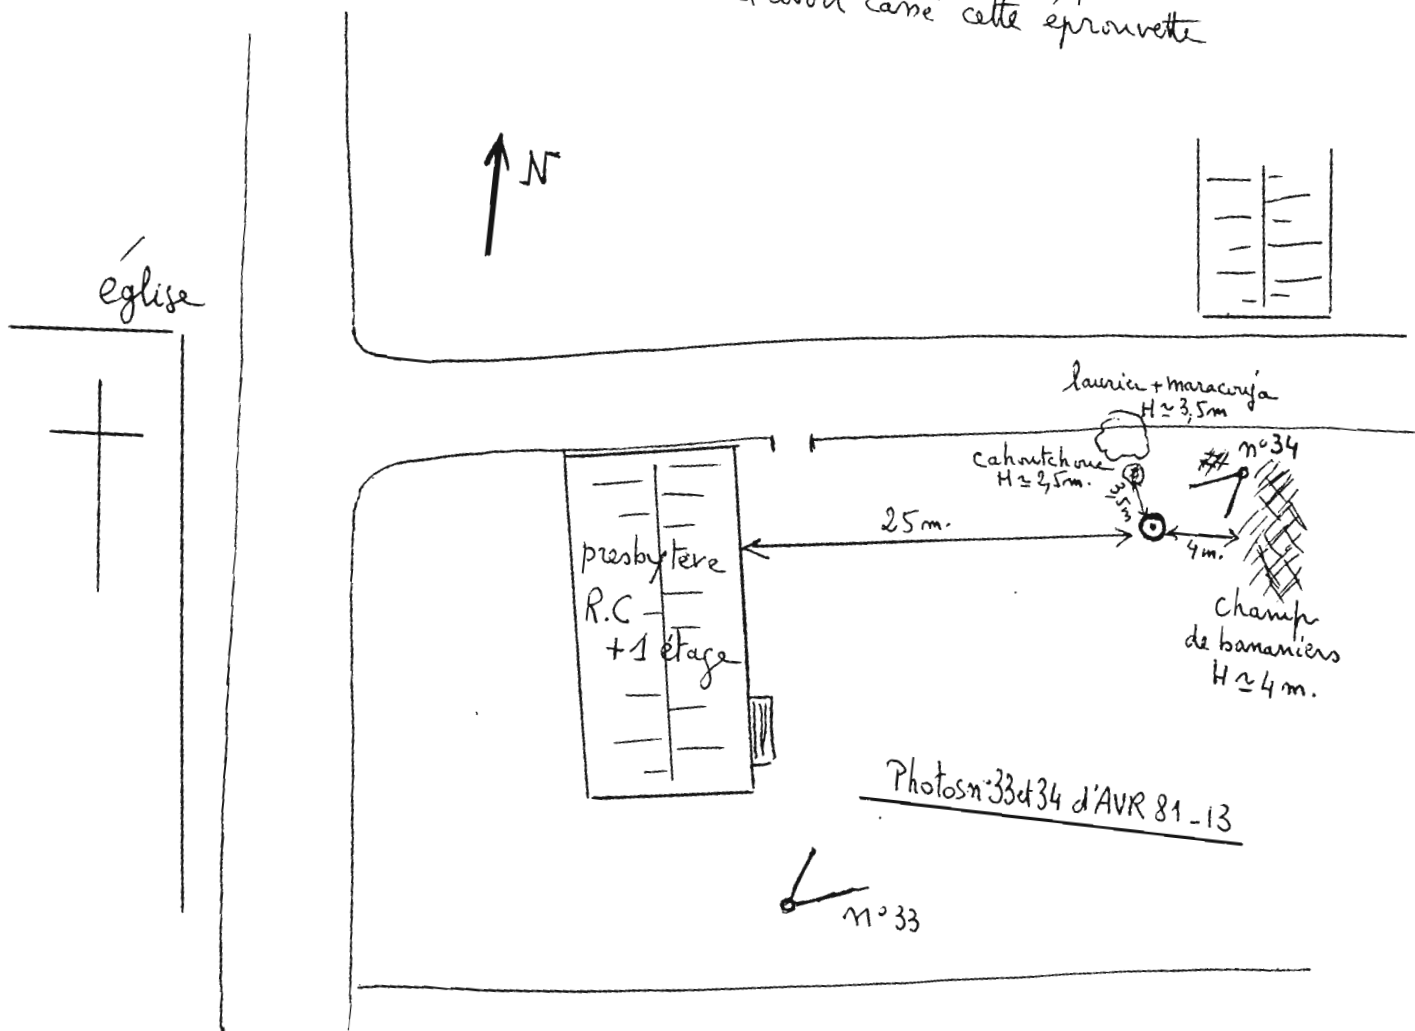 cassé cette éprouvette
N
église
laurier + maracouja
H ≃ 3,5m
n°34
cahoutchouc
H ≃ 2,5m.
3,5m
25 m.
4 m.
presbytère
R.C
+1 étage
champ
de bananiers
H ≃ 4 m.
Photos n°33 et 34 d'AVR 81-13
n°33